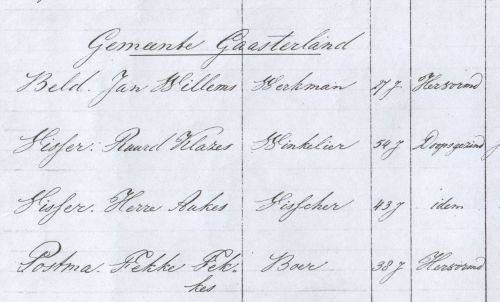 Gemeente Gaasterland
Beld. Jan Willems Werkman 27 j Hervormd
Visser. Ruurd Klazes Winkelier 54 j Doopsgezind
Visser. Herre Aukes Visscher 43 j idem
Postma. Fekke Fek- Boer 38 j Hervormd
kes